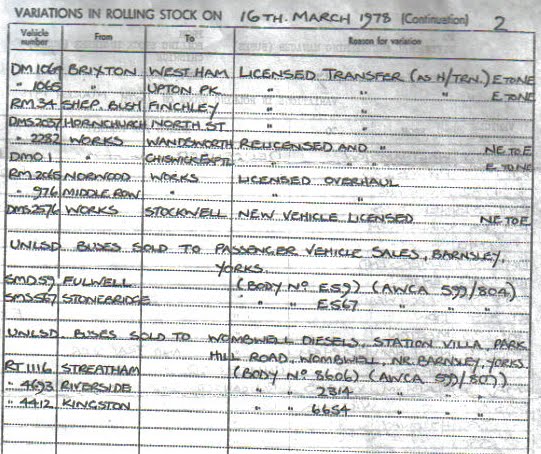 VARIATIONS IN ROLLING STOCK ON 16TH. MARCH 1978 (Continuation) 2
Vehicle number From To Reason for variation
DM.1064 BRIXTON WEST HAM LICENSED TRANSFER (AS H/TRN.) E TO NE
" 1065 " UPTON PK. " " E TO NE
RM.34 SHEP. BUSH FINCHLEY " "
DMS.2037 HORNCHURCH NORTH ST " "
" 2282 WORKS WANDSWORTH RELICENSED AND " NE TO E
DMO.1 " CHISWICK EXPTL " " E TO NE
RM.2065 NORWOOD WORKS LICENSED OVERHAUL
" 976 MIDDLE ROW " " "
DMS.2576 WORKS STOCKWELL NEW VEHICLE LICENSED NE TO E
UNLSD. BUSES SOLD TO PASSENGER VEHICLE SALES, BARNSLEY,
YORKS.
SMD.59 FULWELL (BODY Nº E59) (AWCA 599/804)
SMS.567 STONEBRIDGE " " E567 " "
UNLSD. BUSES SOLD TO WOMBWELL DIESELS, STATION VILLA, PARK
HILL ROAD, WOMBWELL, NR. BARNSLEY, YORKS.
RT 1116 STREATHAM (BODY Nº 8606) (AWCA 599/807)
" 4693 RIVERSIDE " " 2814 " "
" 4412 KINGSTON " " 6654 " "